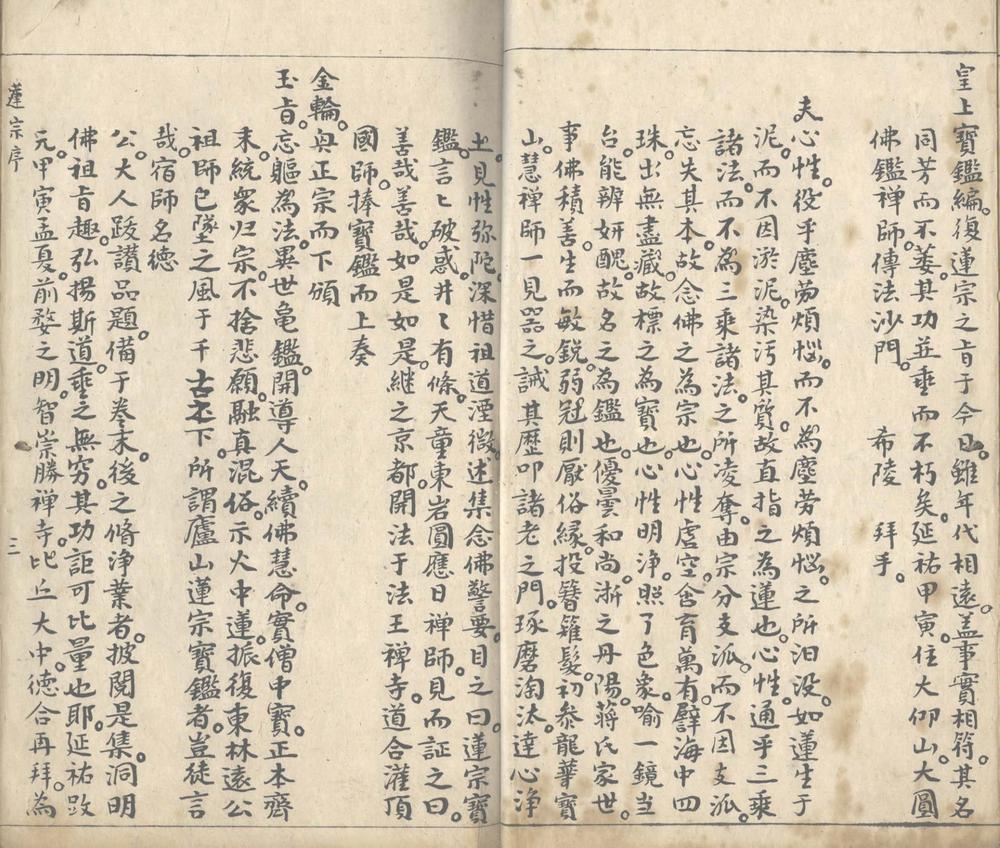 皇上寶鑑編。復蓮宗之旨于今日。雖年代相遠。盖事實相符。其名
同芳而不萎。其功並垂而不朽矣。延祐甲寅。住大仰山。大圓
佛鑑禅師。傳法沙門。希陵 拜手。
夫心性。役乎塵労煩惱。而不為塵劳煩惱。之所汩没。如蓮生于
泥。而不因淤泥。染汚其質。故直指之為蓮也。心性。通乎三乘
諸法。而不為三乘諸法。之所凌奪。由宗分支派。而不因支派。
忘失其本。故念佛之為宗也。心性虚空。含育萬有。譬海中四
珠。出無盡藏。故標之為寳也。心性明浄。照了色象。喻一鏡当
台。能辨妍醜。故名之為鑑也。優曇和尚。浙之丹陽。蒋氏家世。
事佛積善。生而敏鋭。弱冠則厭俗縁。投簪薙髮。初参龍華寳
山。慧禅師一見噐之。誡其歴叩諸老之門。琢磨淘汰。達心浄
土。見性弥陀。深惜祖道湮微。述集念佛警要。目之曰。蓮宗寳
鑑。言〻破惑。井〻有條。天童東岩圓應日禅師。見而証之曰。
善哉善哉。如是如是。継之京都。開法于法王禅寺。道合灌頂
國師。捧寳鑑而上奏
金輪。與正宗而下頒
玉旨。忘軀為法。異世亀鑑。開導人天。續佛慧命。實僧中寳。正本齊
末。統衆归宗。不捨悲願。融真混俗。示火中蓮。振復東林遠公
祖師已墜之風于千古之下。所謂廬山蓮宗寳鑑者。豈徒言
哉。宿師名德
公。大人跋讃品題。備于巻末。後之脩浄業者。披閲是集。洞明
佛祖旨趣。弘揚斯道。垂之無窮。其功詎可比量也耶。延祐改
元。甲寅孟夏。前婺之明。智崇勝禅寺。比丘大中。德合再拜。為
蓮宗序 三